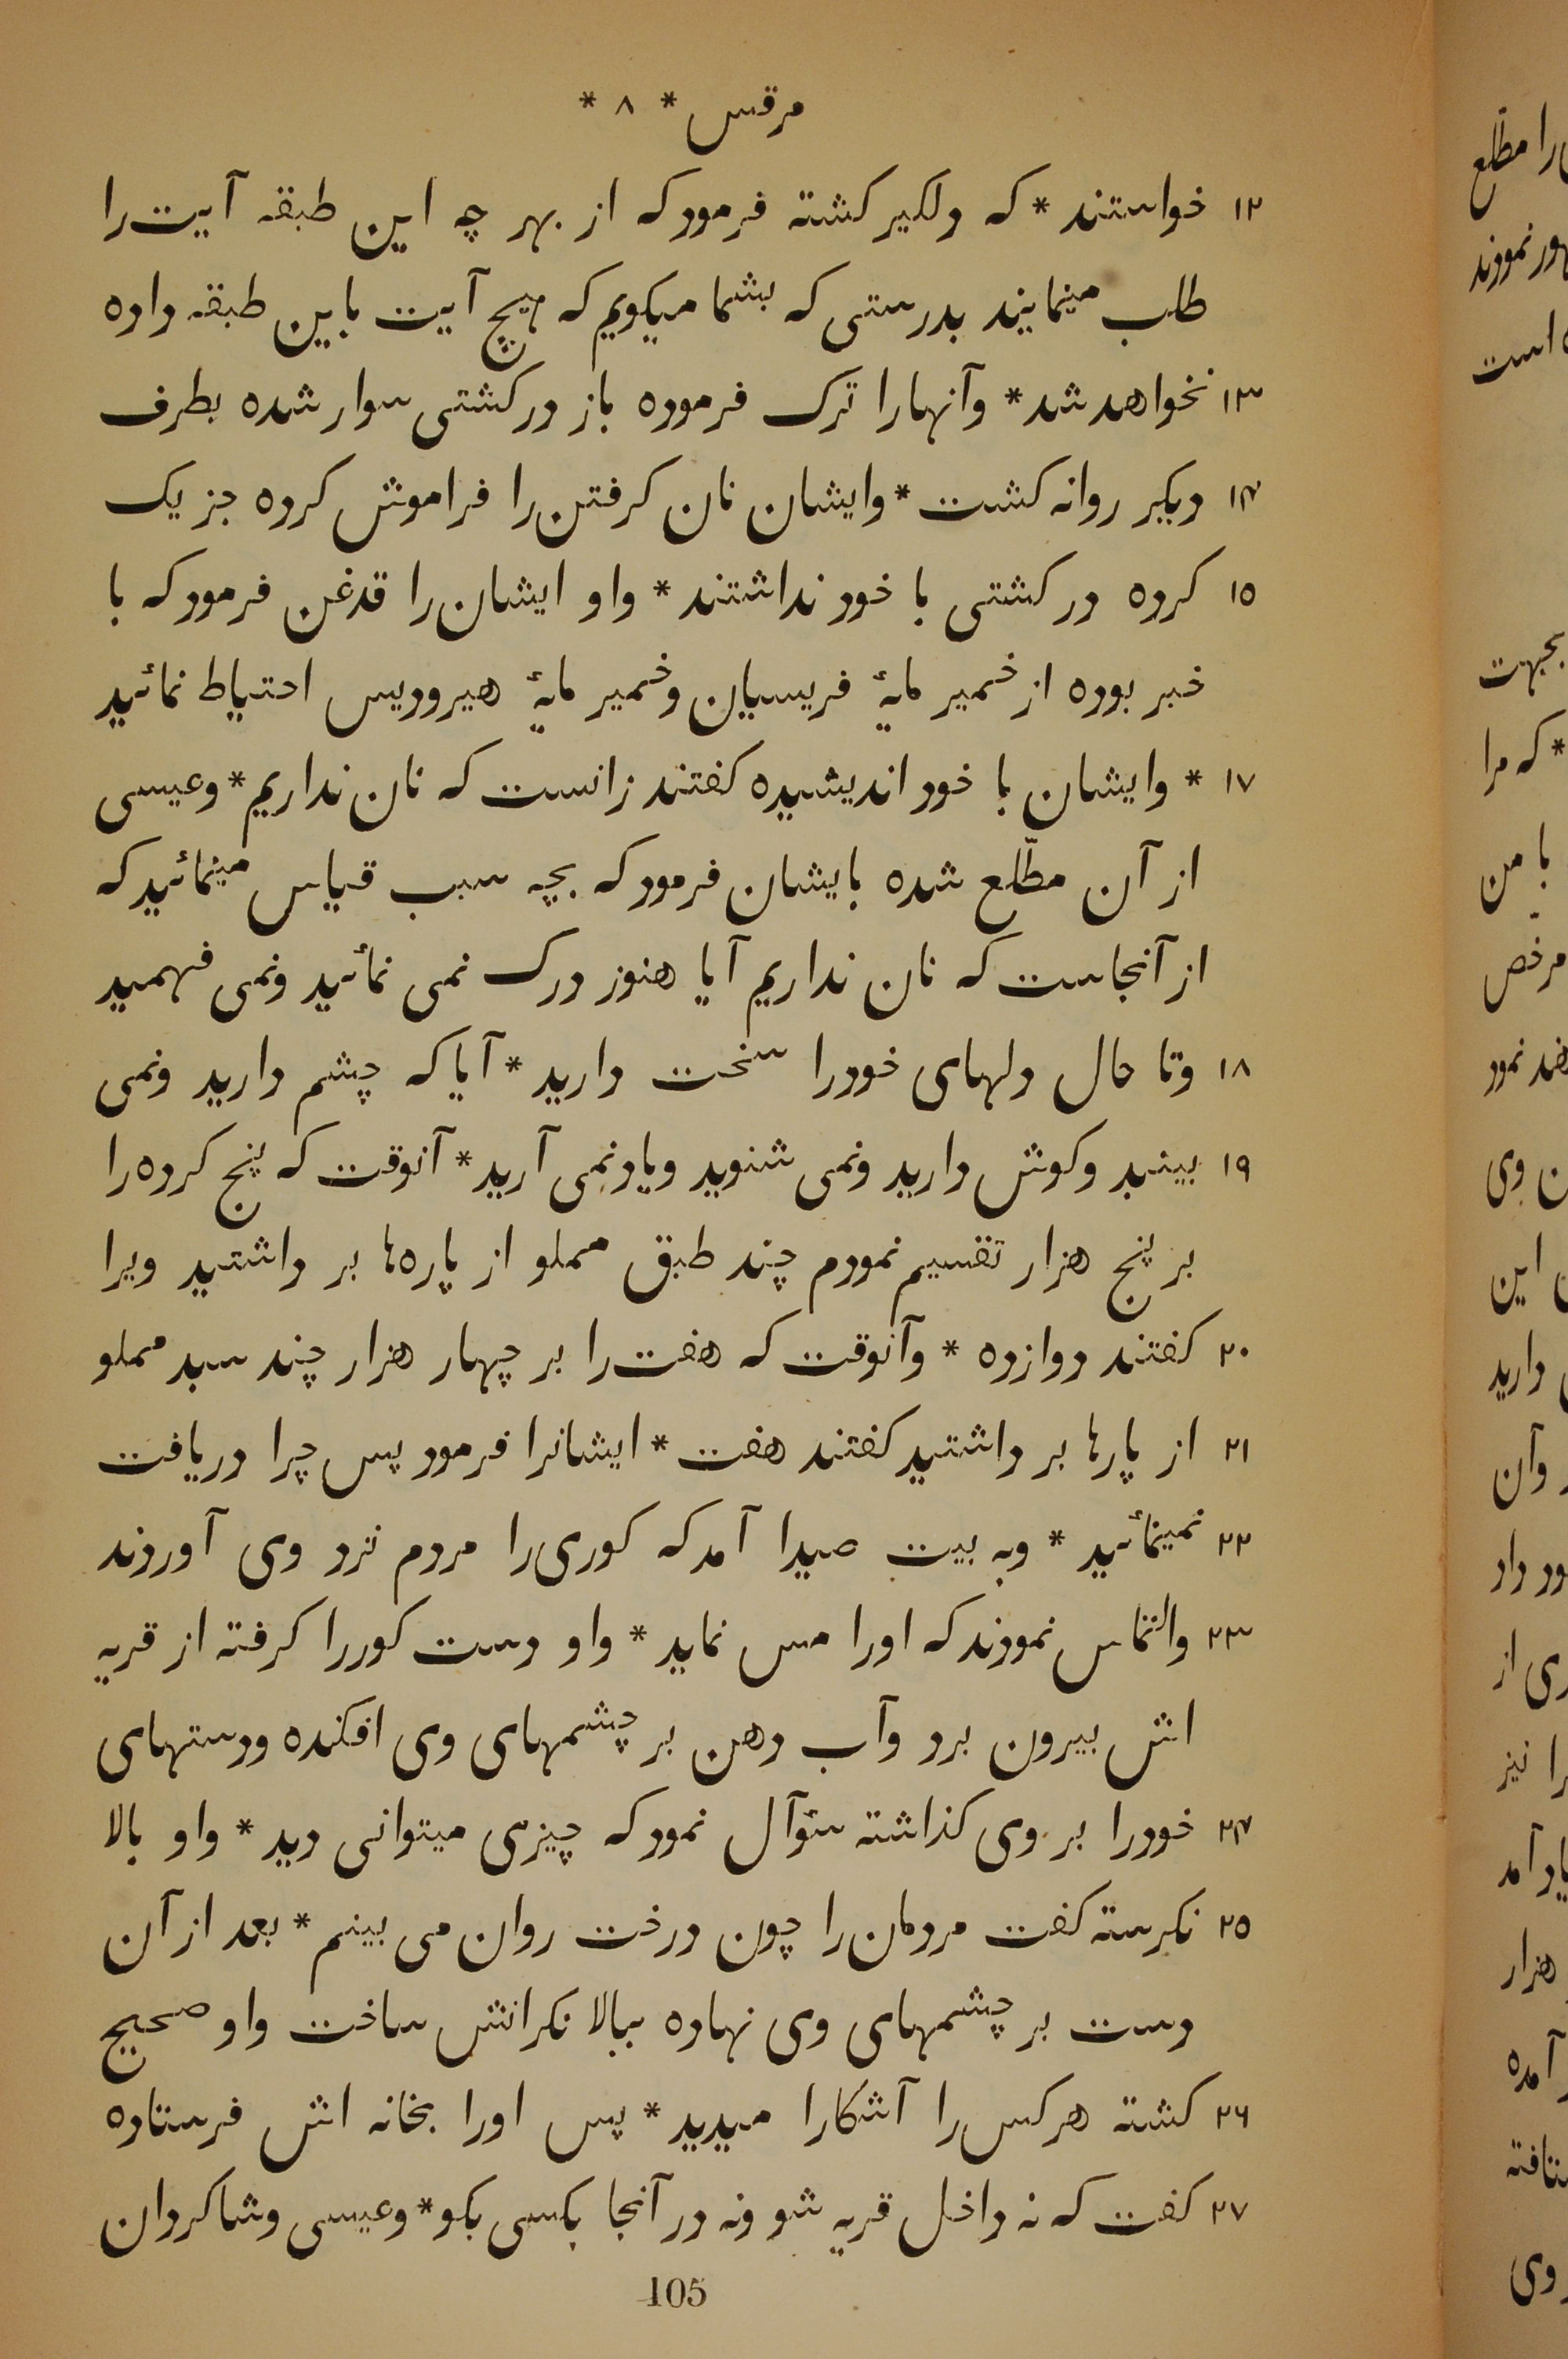 مرقس * ٨ *
١٢ خواستند * که دلکیر کشته فرمود که از بهر چه این طبقه آیت را
طلب مینمایند بدرستی که بشما میکویم که هیچ آیت باین طبقه داده
١٣ نخواهد شد * وآنهارا ترک فرموده باز در کشتی سوار شده بطرف
١۴ دیکر روانه کشت * وایشان نان کرفتن را فراموش کرده جز یک
١٥ کرده در کشتی با خود نداشتند * واو ایشان را قدغن فرمود که با
خبر بوده از خمیر مایهٔ فریسیان وخمیر مایهٔ هیرودیس احتیاط نمائید
١٧ * وایشان با خود اندیشیده کفتند زانست که نان نداریم * وعیسی
از آن مطّلع شده بایشان فرمود که بچه سبب قیاس مینمائید که
از آنجاست که نان نداریم آیا هنوز درک نمی نمائید ونمی فهمید
١٨ وتا حال دلهای خودرا سخت دارید * آیا که چشم دارید ونمی
١٩ بینید وکوش دارید ونمی شنوید ویاد نمی آرید * آنوقت که پنج کرده را
بر پنج هزار تقسیم نمودم چند طبق مملو از پارهها بر داشتید ویرا
٢٠ کفتند دوازده * وآنوقت که هفت را بر چهار هزار چند سبد مملو
٢١ از پارها بر داشتید کفتند هفت * ایشانرا فرمود پس چرا دریافت
٢٢ نمینمائید * وبه بیت صیدا آمد که کوری را مردم نزد وی آوردند
٢٣ والتماس نمودند که اورا مس نماید * واو دست کوررا کرفته از قریه
اش بیرون برد وآب دهن بر چشمهای وی افکنده ودستهای
٢۴ خودرا بر وی کذاشته سئوآل نمود که چیزی میتوانی دید * واو بالا
٢٥ نکرسته کفت مردمان را چون درخت روان می بینم * بعد از آن
دست بر چشمهای وی نهاده ببالا نکرانش ساخت واو صحیح
٢٦ کشته هر کس را آشکارا میدید * پس اورا بخانه اش فرستاده
٢٧ کفت که نه داخل قریه شو ونه در آنجا بکسی بکو * وعیسی وشاکردان
105
را مطلع
نمودند
است
بجهت
* که مرا
با من
مرخّص
نمود
وی
این
دارید
وآن
داد
از
را نیز
آمد
هزار
آمده
وی